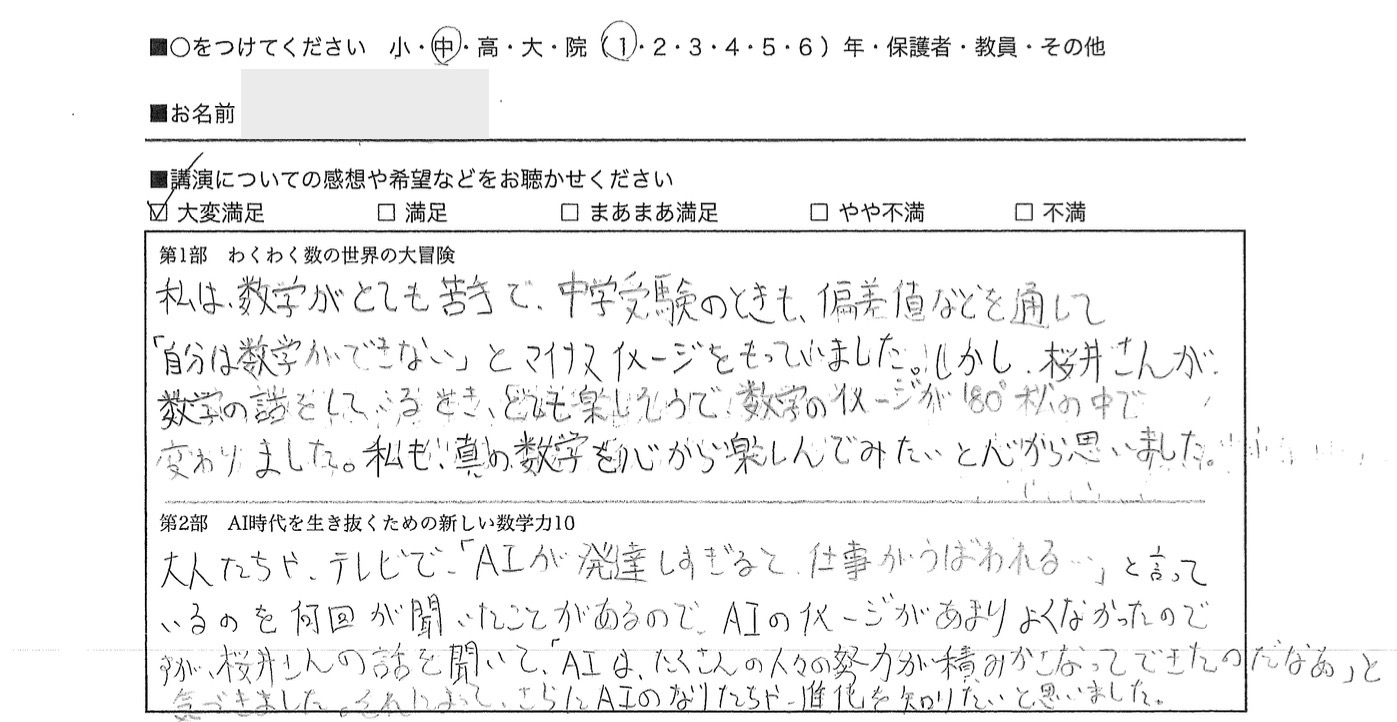 ■○をつけてください　小・中・高・大・院（1・2・3・4・5・6）年・保護者・教員・その他
■お名前
■講演についての感想や希望などをお聴かせください
☑ 大変満足　□ 満足　□ まあまあ満足　□ やや不満　□ 不満
第1部　わくわく数の世界の大冒険
私は、数学がとても苦手で、中学受験のときも、偏差値などを通して
「自分は数学ができない」とマイナスイメージをもっていました。しかし、桜井さんが、
数学の話をしているとき、とても楽しそうで、数学のイメージが180°私の中で
変わりました。私も、真の数学を心から楽しんでみたいと心から思いました。
第2部　AI時代を生き抜くための新しい数学力10
大人たちや、テレビで、「AIが発達しすぎると、仕事がうばわれる…」と言って
いるのを何回か聞いたことがあるので、AIのイメージがあまりよくなかったので
すが、桜井さんの話を聞いて、「AIは、たくさんの人々の努力が積みかさなってできたのだなぁ」と
気づきました。それによって、さらにAIのなりたちや進化を知りたいと思いました。